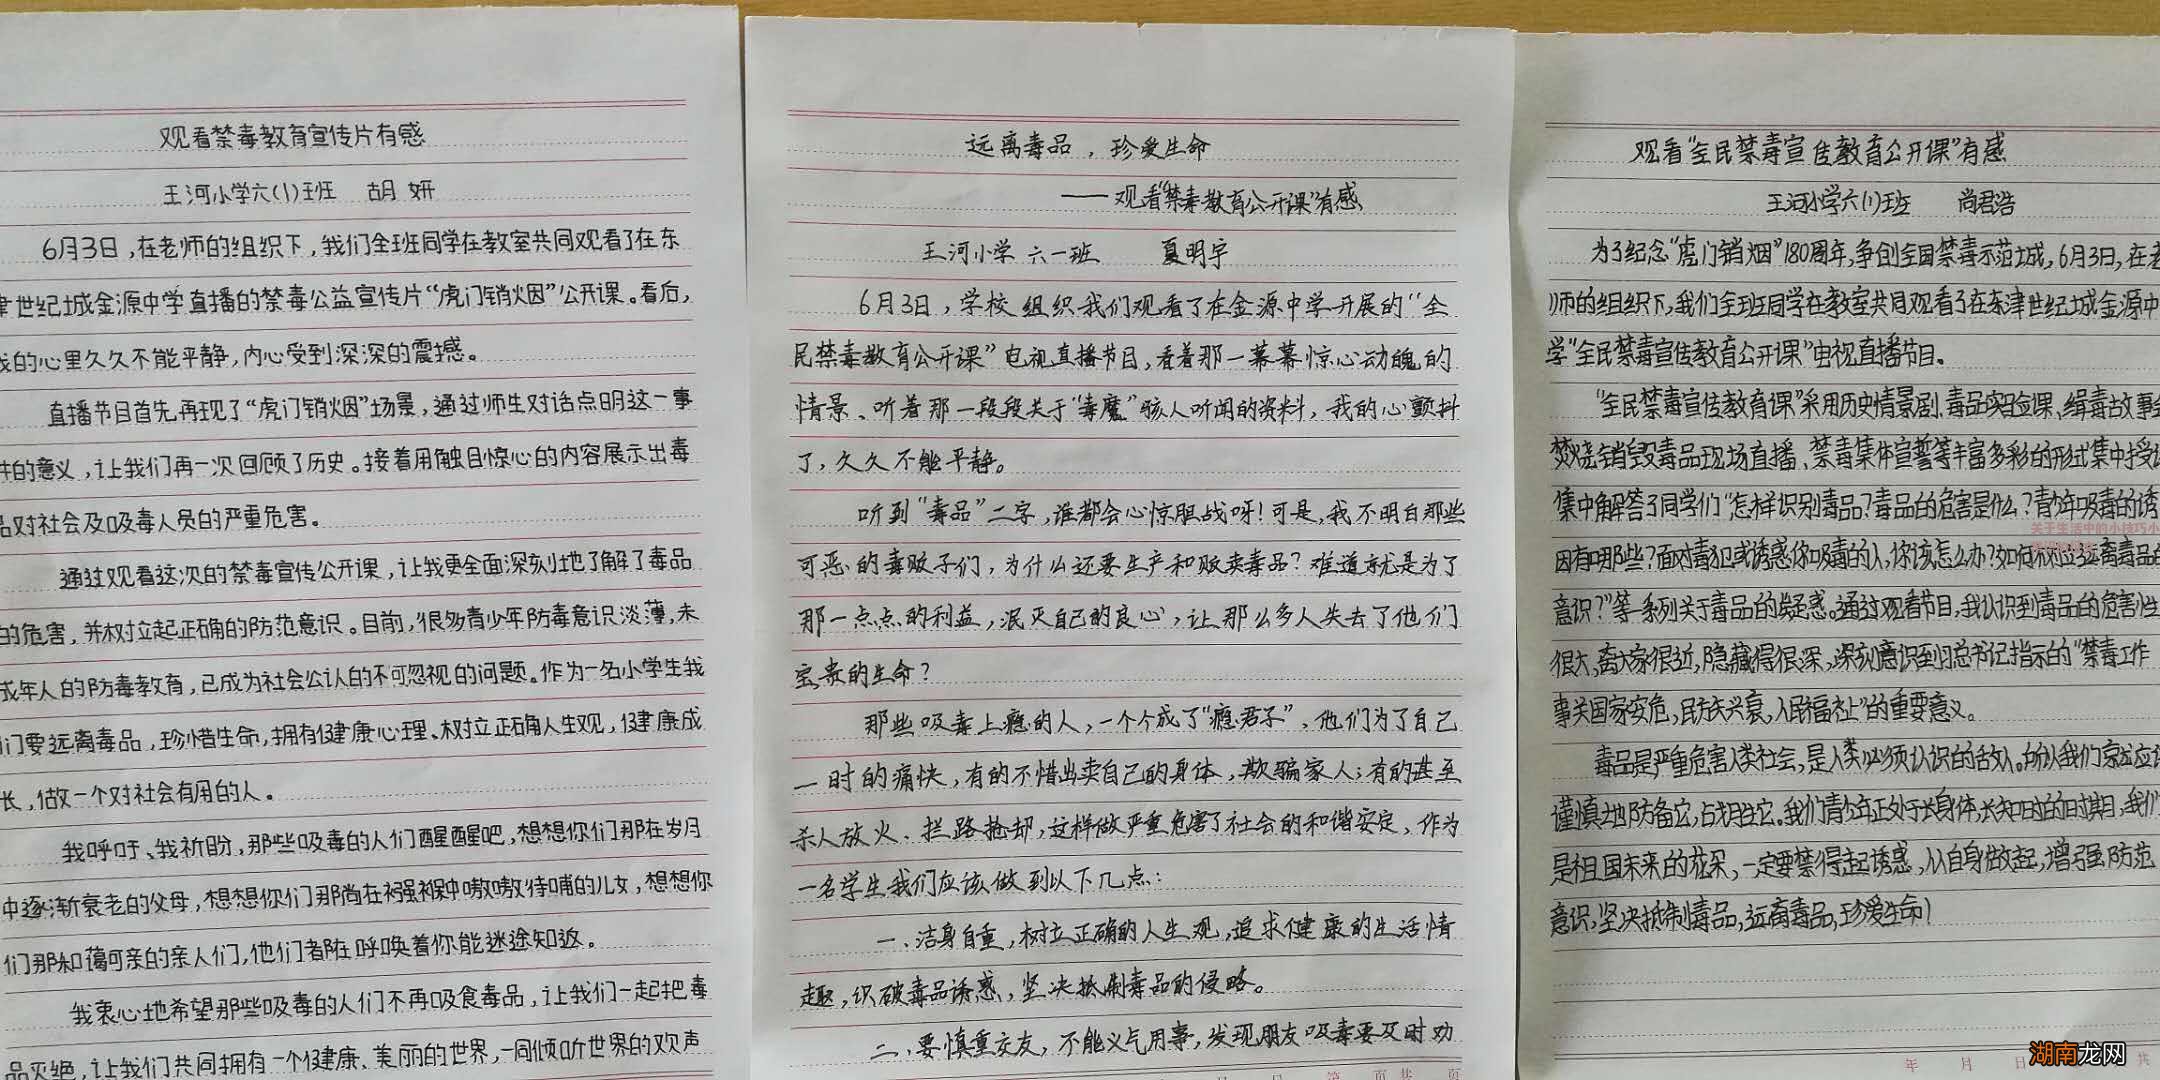 观看禁毒教育宣传片有感
王河小学六(1)班 胡妍
6月3日,在老师的组织下,我们全班同学在教室共同观看了在东
津世纪城金源中学直播的禁毒公益宣传片“虎门销烟”公开课。看后,
我的心里久久不能平静,内心受到深深的震撼。
直播节目首先再现了“虎门销烟”场景,通过师生对话点明这一事
件的意义,让我们再一次回顾了历史。接着用触目惊心的内容展示出毒
品对社会及吸毒人员的严重危害。
通过观看这次的禁毒宣传公开课,让我更全面深刻地了解了毒品
的危害,并树立起正确的防范意识。目前,很多青少年防毒意识淡薄,未
成年人的防毒教育,已成为社会公认的不可忽视的问题。作为一名小学生我
们要远离毒品,珍惜生命,拥有健康心理、树立正确人生观,健康成
长,做一个对社会有用的人。
我呼吁、我祈盼,那些吸毒的人们醒醒吧,想想你们那在岁月
中逐渐衰老的父母,想想你们那尚在襁褓中嗷嗷待哺的儿女,想想你
们那和蔼可亲的亲人们,他们都在呼唤着你能迷途知返。
我衷心地希望那些吸毒的人们不再吸食毒品,让我们一起把毒
品灭绝,让我们共同拥有一个健康、美丽的世界,一同倾听世界的欢声
远离毒品,珍爱生命
——观看“禁毒教育公开课”有感
王河小学 六一班 夏明宇
6月3日,学校组织我们观看了在金源中学开展的“全
民禁毒教育公开课”电视直播节目,看着那一幕幕惊心动魄的
情景、听着那一段段关于“毒魔”骇人听闻的资料,我的心颤抖
了,久久不能平静。
听到“毒品”二字,谁都会心惊胆战呀!可是,我不明白那些
可恶的毒贩子们,为什么还要生产和贩卖毒品?难道就是为了
那一点点的利益,泯灭自己的良心,让那么多人失去了他们
宝贵的生命?
那些吸毒上瘾的人,一个个成了“瘾君子”,他们为了自己
一时的痛快,有的不惜出卖自己的身体,欺骗家人;有的甚至
杀人放火、拦路抢劫,这样做严重危害了社会的和谐安定,作为
一名学生我们应该做到以下几点:
一、洁身自重,树立正确的人生观,追求健康的生活情
趣,识破毒品诱惑,坚决抵制毒品的侵略。
二、要慎重交友,不能义气用事,发现朋友吸毒要及时劝
第 页 共 页
观看“全民禁毒宣传教育公开课”有感
王河小学六(1)班 尚君浩
为了纪念“虎门销烟”180周年,争创全国禁毒示范城,6月3日,在老
师的组织下,我们全班同学在教室共同观看了在东津世纪城金源中
学“全民禁毒宣传教育公开课”电视直播节目。
“全民禁毒宣传教育课”采用历史情景剧、毒品实验课、缉毒故事会
焚烧销毁毒品现场直播、禁毒集体宣誓等丰富多彩的形式集中授课
集中解答了同学们“怎样识别毒品?毒品的危害是什么?青少年吸毒的诱
因有哪些?面对毒犯或诱惑你吸毒的人,你该怎么办?如何树立远离毒品的
意识?”等一系列关于毒品的疑惑。通过观看节目,我认识到毒品的危害性
很大,离大家很近,隐藏得很深,深刻意识到习总书记指示的“禁毒工作
事关国家安危,民族兴衰,人民福祉”的重要意义。
毒品是严重危害人类社会,是人类必须认识的敌人。所以我们家就应该
谨慎地防备它,战胜它。我们青少年正处于长身体,长知识的时期,我们
是祖国未来的花朵,一定要禁得起诱惑,从自身做起,增强防范
意识,坚决抵制毒品,远离毒品,珍爱生命!
关于生活中的小技巧小
年 月 日
共
湖南龙网